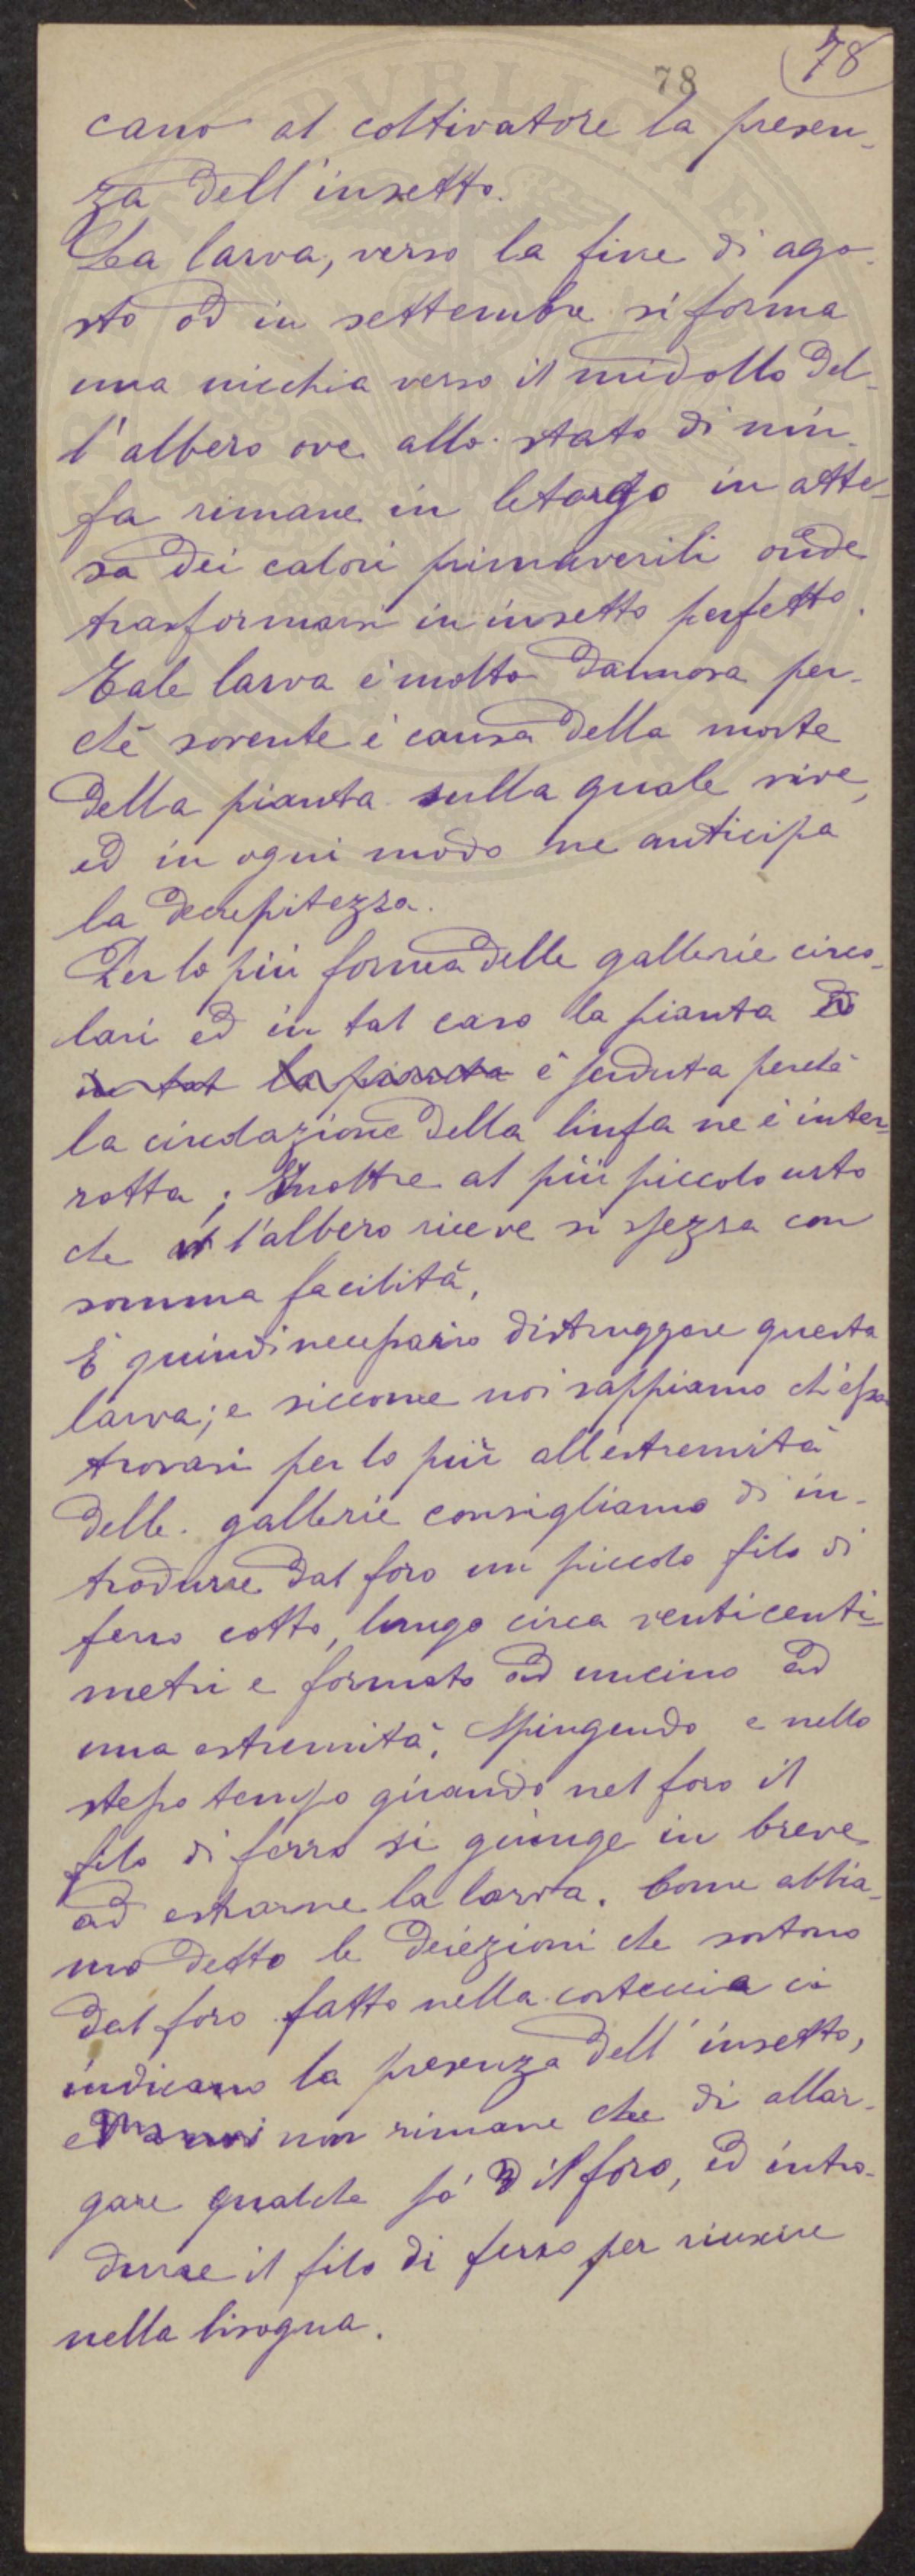 78
78
cano al coltivatore la presen-
za dell'insetto.
La larva, verso la fine di ago-
sto od in settembre si forma
una nicchia verso il midollo del-
l'albero ove allo stato di nin-
fa rimane in letargo in atte-
sa dei calori primaverili onde
trasformarsi in insetto perfetto.
Tale larva è molto dannosa per-
chè sovente è causa della morte
della pianta sulla quale vive,
ed in ogni modo ne anticipa
la decrepitezza.
Per lo più forma delle gallerie circo-
lari ed in tal caso la pianta ed
in tal la pianta è perduta perchè
la circolazione della linfa ne è inter-
rotta; Inoltre al più piccolo urto
che l'albero riceve si spezza con
somma facilità,
È quindi necessario distruggere questa
larva; e siccome noi sappiamo ch'essa
trovasi per lo più all'estremità
delle gallerie consigliamo di in-
trodurre dal foro un piccolo filo di
ferro cotto, lungo circa venticenti-
metri e formato ad uncino ad
una estremità, Spingendo e nello
stesso tempo girando nel foro il
filo di ferro si giunge in breve
ad estrarne la larva. Come abbia-
mo detto le deiezioni che sortono
dal foro fatto nella corteccia ci
indicano la presenza dell'insetto,
ed a noi non rimane che di allar-
gare qualche pò il foro, ed intro-
durre il filo di ferro per riuscire
nella bisogna.